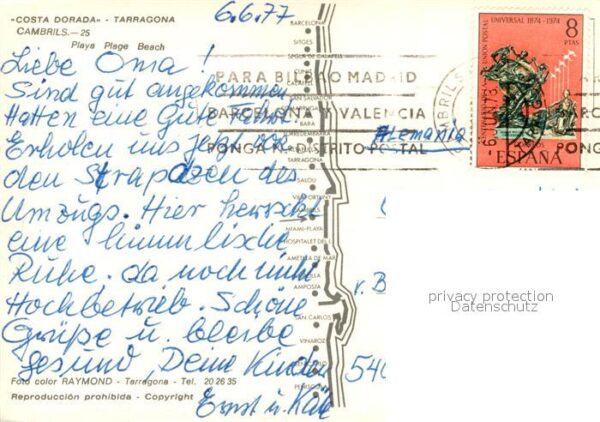 6.6.77
«COSTA DORADA» - TARRAGONA
CAMBRILS.—25
Playa Plage Beach
Liebe Oma!
Sind gut angekommen
Hatten eine Gute Fahrt.
Erholen uns jetzt von
den Strapazen des
Umzugs. Hier herrscht
eine himmlische
Ruhe, da noch nicht
Hochbetrieb. Schöne
Grüße u. bleibe
gesund, Deine Kinder
Ernst u.
Foto color RAYMOND - Tarragona - Tel. 20 26 35
Reproducción prohibida - Copyright
BARCELONA
SITGES
CUNIT
SAN SALVADOR
BARA
TORREDEMBARRA
TARRAGONA
SALOU
CAMBRILS
MIAMI-PLAYA
HOSPITALET DEL I.
AMETLLA DE MAR
AMPOSTA
SAN CARLOS
VINAROZ
PARA BILBAO MADRID
BARCELONA Y VALENCIA
PONGA Nº DISTRITO POSTAL
Alemania
CAMBRILS
UNION POSTAL UNIVERSAL 1874-1974
8
PTAS
ESPAÑA
PARA
BARCE
PONGA
v. B
540
privacy protection
Datenschutz